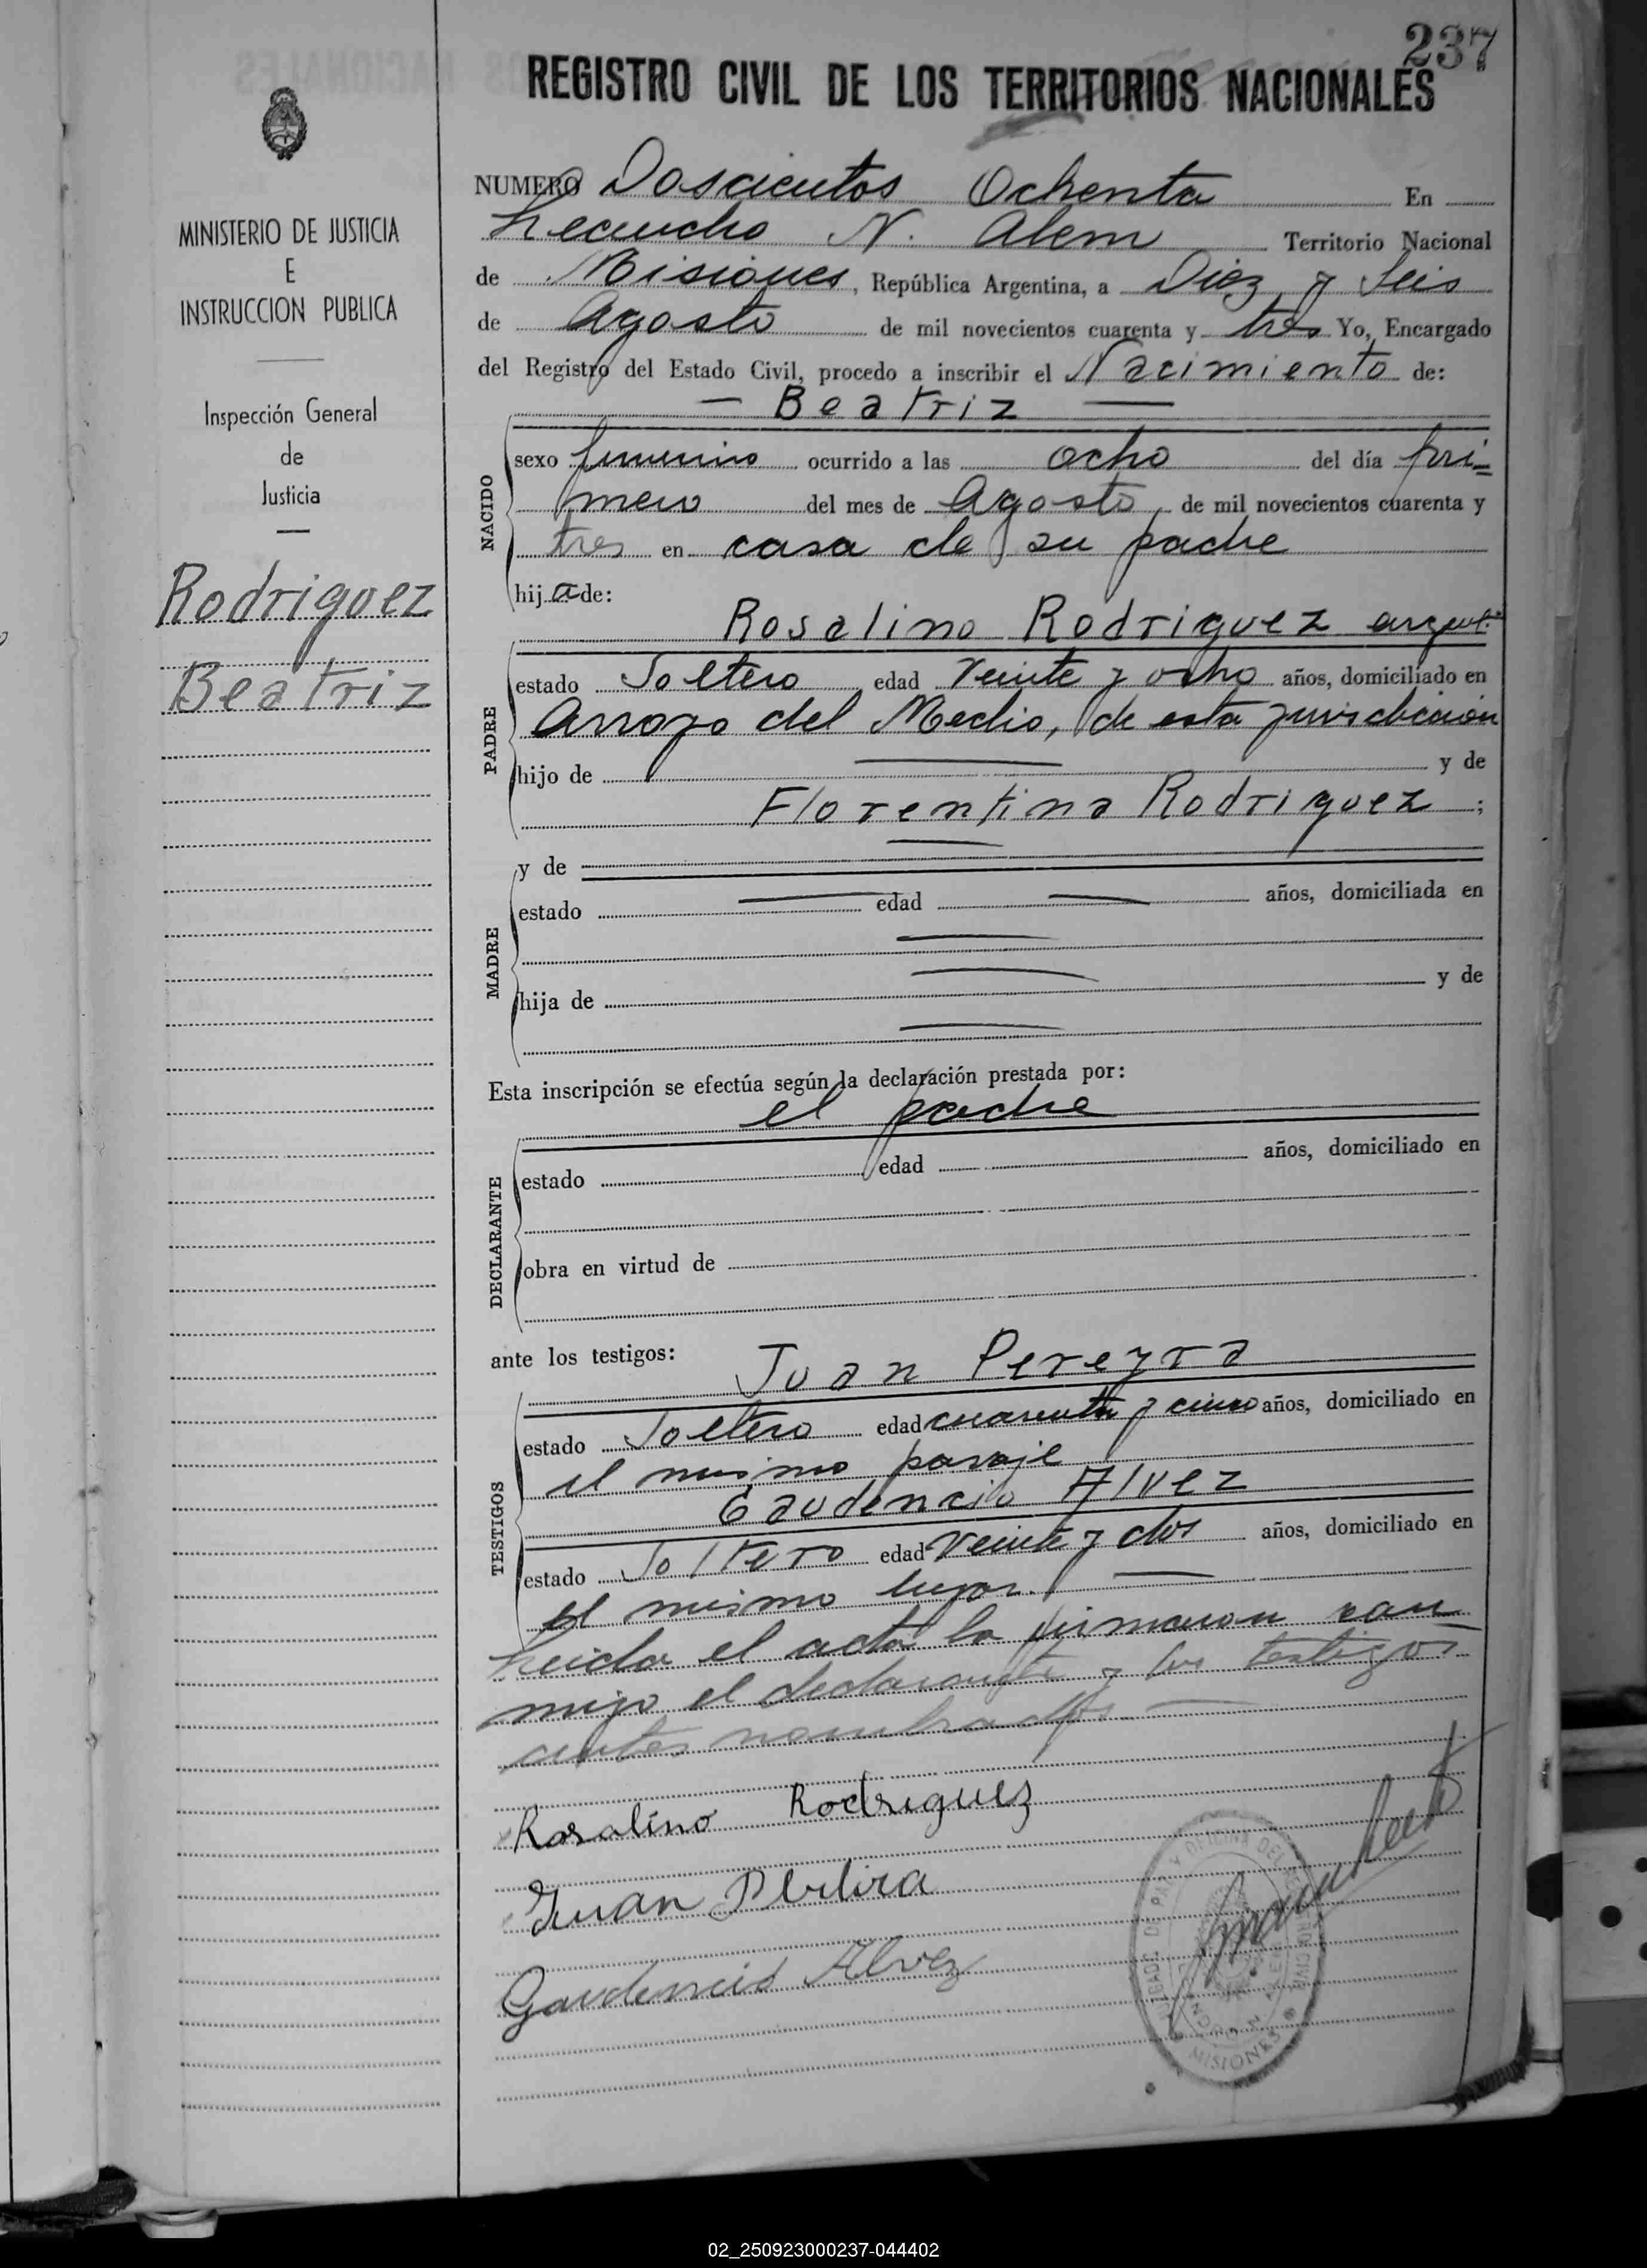 237
REGISTRO CIVIL DE LOS TERRITORIOS NACIONALES
MINISTERIO DE JUSTICIA
E
INSTRUCCION PUBLICA
Inspección General
de
Justicia
Rodriguez
Beatriz
NUMERO Doscientos Ochenta En
Leandro N. Alem Territorio Nacional
de Misiones, República Argentina, a Diez y Seis
de Agosto de mil novecientos cuarenta y tres Yo, Encargado
del Registro del Estado Civil, procedo a inscribir el Nacimiento de:
— Beatriz —
NACIDO
sexo femenino ocurrido a las ocho del día pri=
mero del mes de Agosto, de mil novecientos cuarenta y
tres en casa de su padre
hija de:
Rosalino Rodriguez argent.
PADRE
estado Soltero edad Veinte y ocho años, domiciliado en
Arroyo del Medio, de esta jurisdiccion
hijo de — y de
Florentina Rodriguez ;
MADRE
y de —
estado — edad — años, domiciliada en
—
hija de — y de
—
Esta inscripción se efectúa según la declaración prestada por:
el padre
DECLARANTE
estado edad años, domiciliado en
obra en virtud de
ante los testigos:
Juan Pereyra
TESTIGOS
estado Soltero edad cuarenta y cinco años, domiciliado en
el mismo paraje
Gaudencio Alvez
estado Soltero edad Veinte y dos años, domiciliado en
el mismo lugar. —
Leida el acta la firmaron con
migo el declarante y los testigos
antes nombrados. —
Rosalino Rodriguez
Juan
Gaudencio Alvez
JUZGADO DE PAZ Y OFICINA DEL REGISTRO CIVIL
MISIONES
02_250923000237-044402